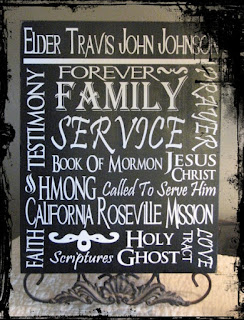 ELDER TRAVIS JOHN JOHNSON
FOREVER
FAMILY
TESTIMONY
PRAYER
SERVICE
BOOK OF MORMON
JESUS
CHRIST
&
HMONG
Called To Serve Him
CALIFORNIA ROSEVILLE MISSION
FAITH
HOLY
GHOST
Scriptures
LOVE
TRACT